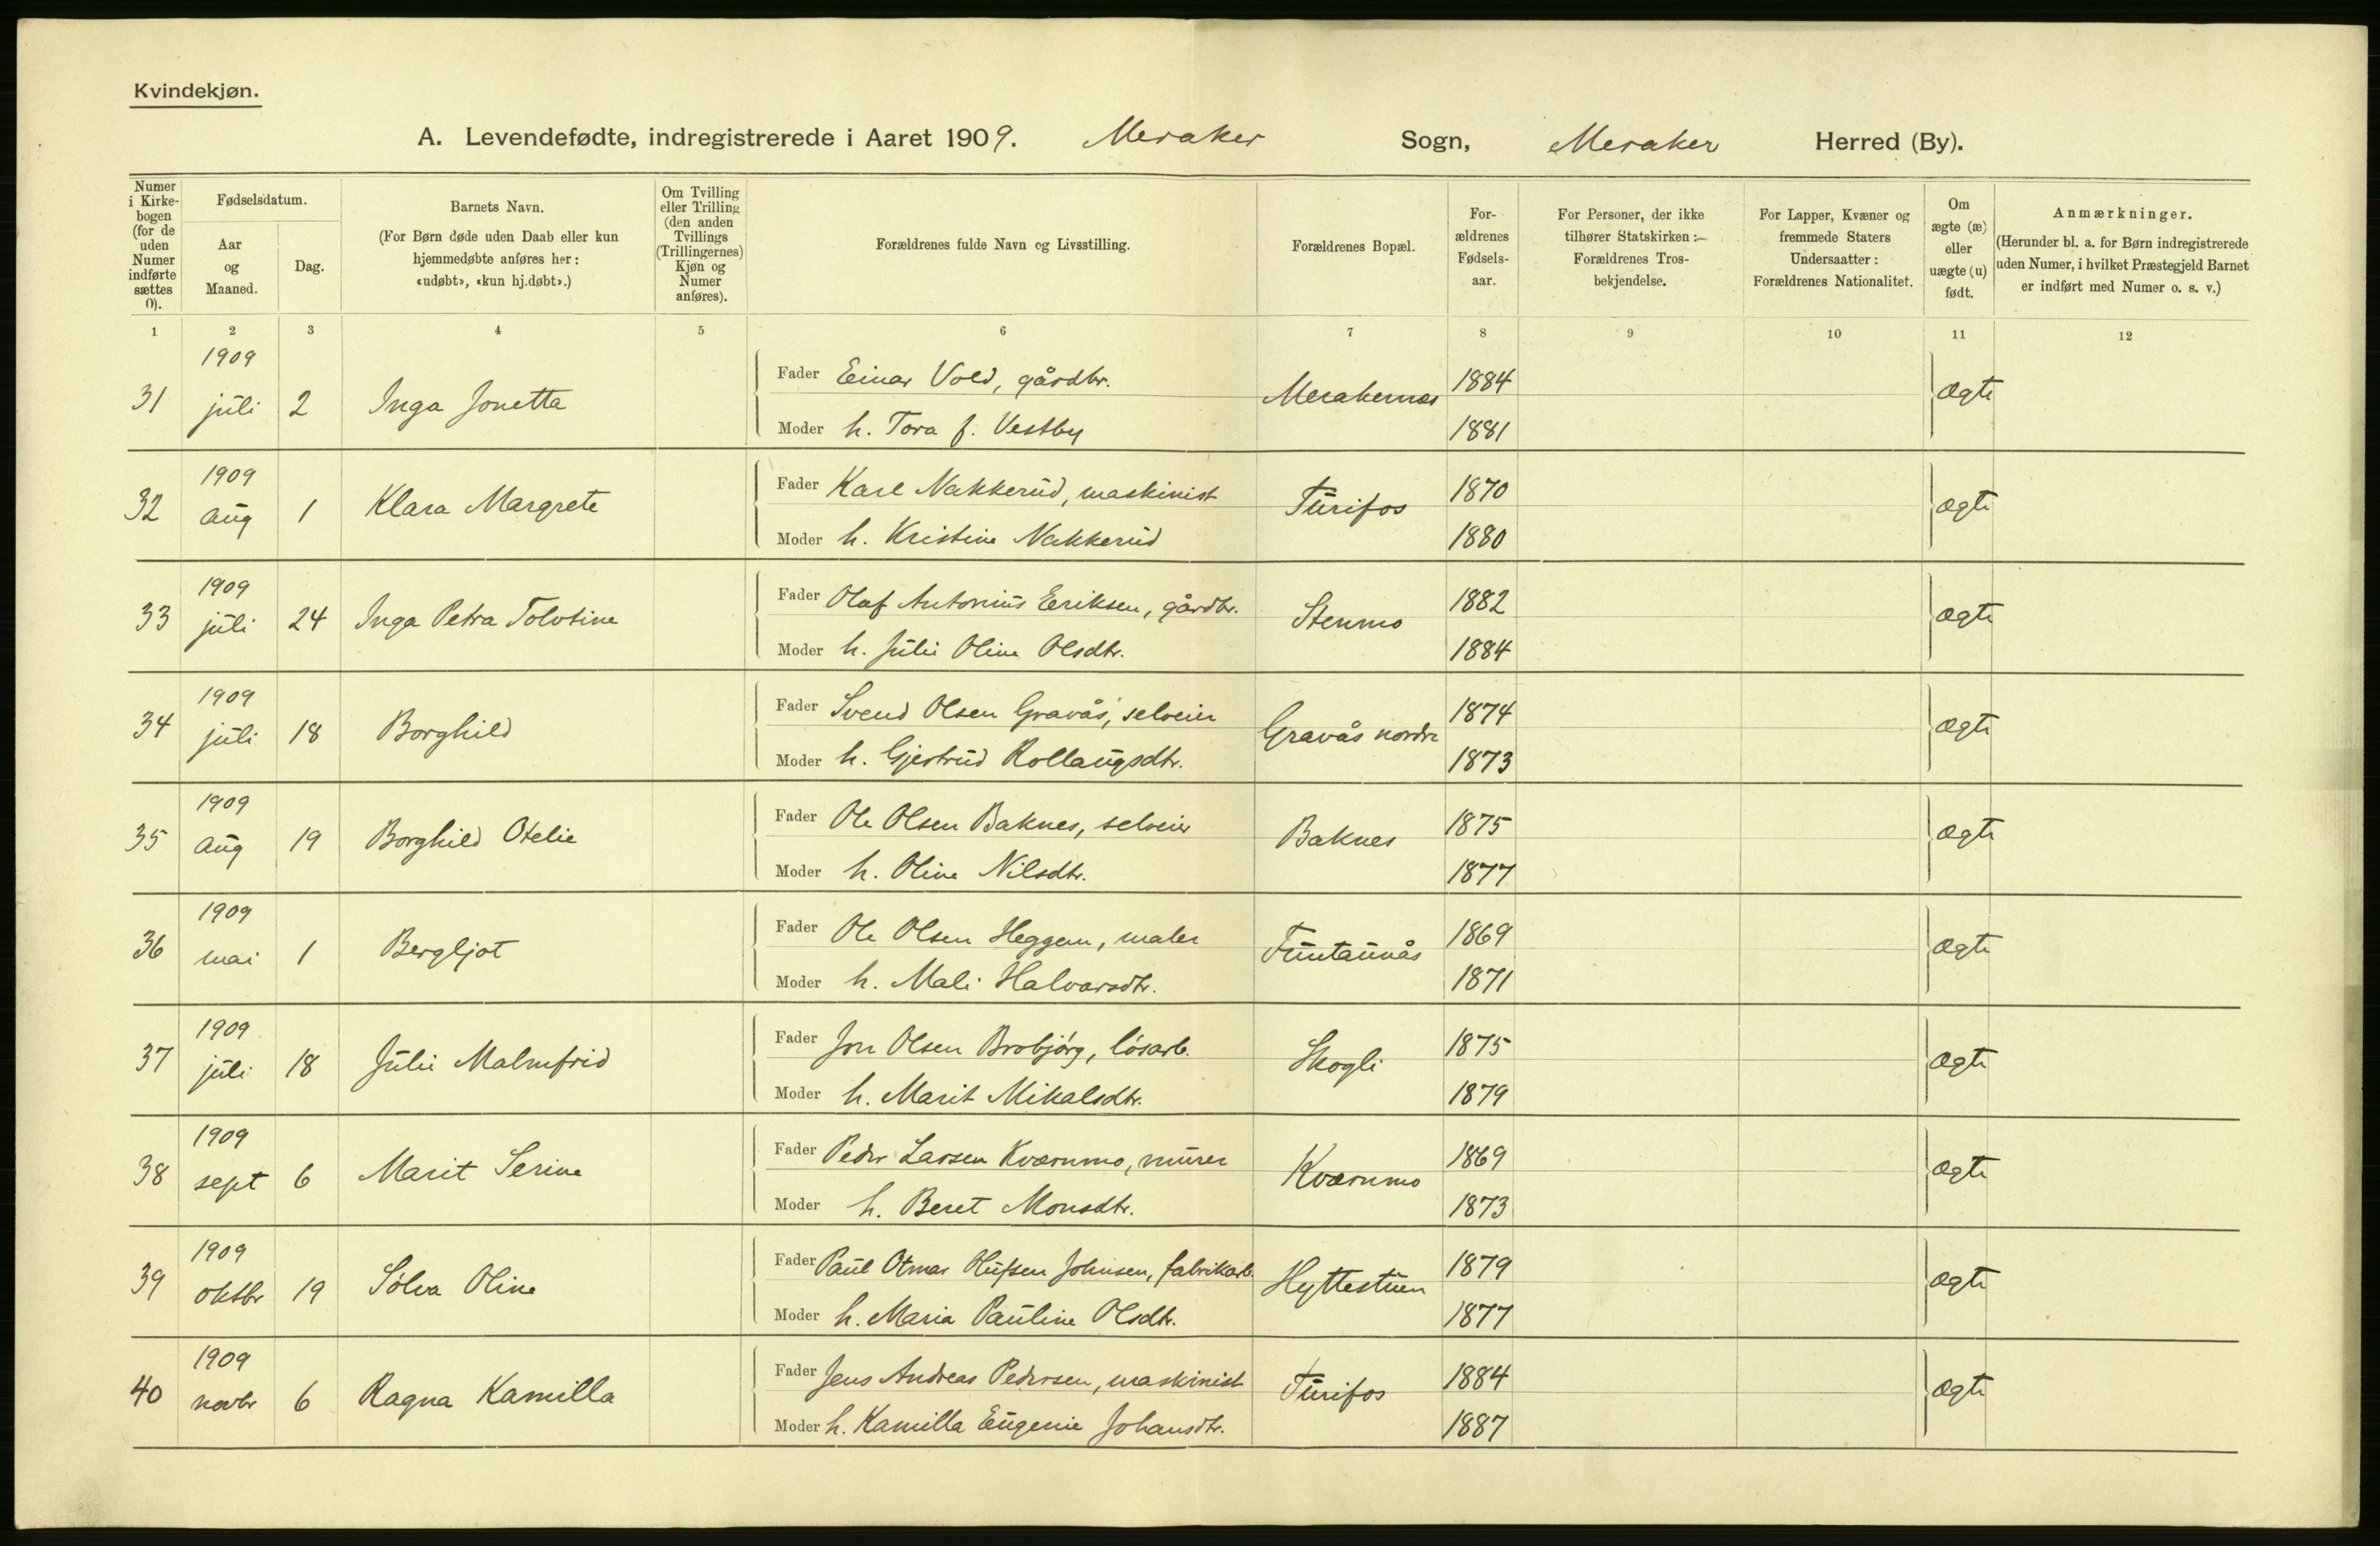 Kvindekjøn.
A. Levendefødte, indregistrerede i Aaret 1909. Meraker Sogn, Meraker Herred (By).
Numer i Kirke-bogen (for de uden Numer indførte sættes 0).
Fødselsdatum.
Aar og Maaned.
Dag.
Barnets Navn.
(For Børn døde uden Daab eller kun hjemmedøbte anføres her: «udøbt», «kun hj.døbt».)
Om Tvilling eller Trilling (den anden Tvillings (Trillingernes) Kjøn og Numer anføres).
Forældrenes fulde Navn og Livsstilling.
Forældrenes Bopæl.
For-ældrenes Fødsels-aar.
For Personer, der ikke tilhører Statskirken:— Forældrenes Tros-bekjendelse.
For Lapper, Kvæner og fremmede Staters Undersaatter: Forældrenes Nationalitet.
Om ægte (æ) eller uægte (u) født.
Anmærkninger.
(Herunder bl. a. for Børn indregistrerede uden Numer, i hvilket Præstegjeld Barnet er indført med Numer o. s. v.)
1 2 3 4 5 6 7 8 9 10 11 12
1909
31 juli 2 Inga Jonetta Fader Einar Vold, gårdbr. Merakernes 1884 ægte
Moder h. Tora f. Vestby 1881
1909
32 aug 1 Klara Margrete Fader Karl Nakkerud, maskinist Turifos 1870 ægte
Moder h. Kristine Nakkerud 1880
1909
33 juli 24 Inga Petra Tolotine Fader Olaf Antonius Eriksen, gårdbr. Stenmo 1882 ægte
Moder h. Juli Oline Olsdtr. 1884
1909
34 juli 18 Borghild Fader Svend Olsen Gravås, selveier Gravås nordre 1874 ægte
Moder h. Gjertrud Rollaugsdtr. 1873
1909
35 aug 19 Borghild Otelie Fader Ole Olsen Baknes, selveier Baknes 1875 ægte
Moder h. Oline Nilsdtr. 1877
1909
36 mai 1 Bergljot Fader Ole Olsen Heggem, maler Funtaunås 1869 ægte
Moder h. Mali Halvorsdtr. 1871
1909
37 juli 18 Julie Malmfrid Fader Jon Olsen Brobjørg, løsarb. Skogli 1875 ægte
Moder h. Marit Mikalsdtr. 1879
1909
38 sept 6 Marit Serine Fader Peder Larsen Kværnmo, murer Kværnmo 1869 ægte
Moder h. Beret Monsdtr. 1873
1909
39 oktbr 19 Sólva Oline Fader Paul Otmar Johnsen, fabrikarb. Hyttestuen 1879 ægte
Moder h. Maria Pauline Olsdtr. 1877
1909
40 novbr 6 Ragna Kamilla Fader Jens Andreas Pedersen, maskinist Turifos 1884 ægte
Moder h. Kamilla Eugenie Johansdtr. 1887